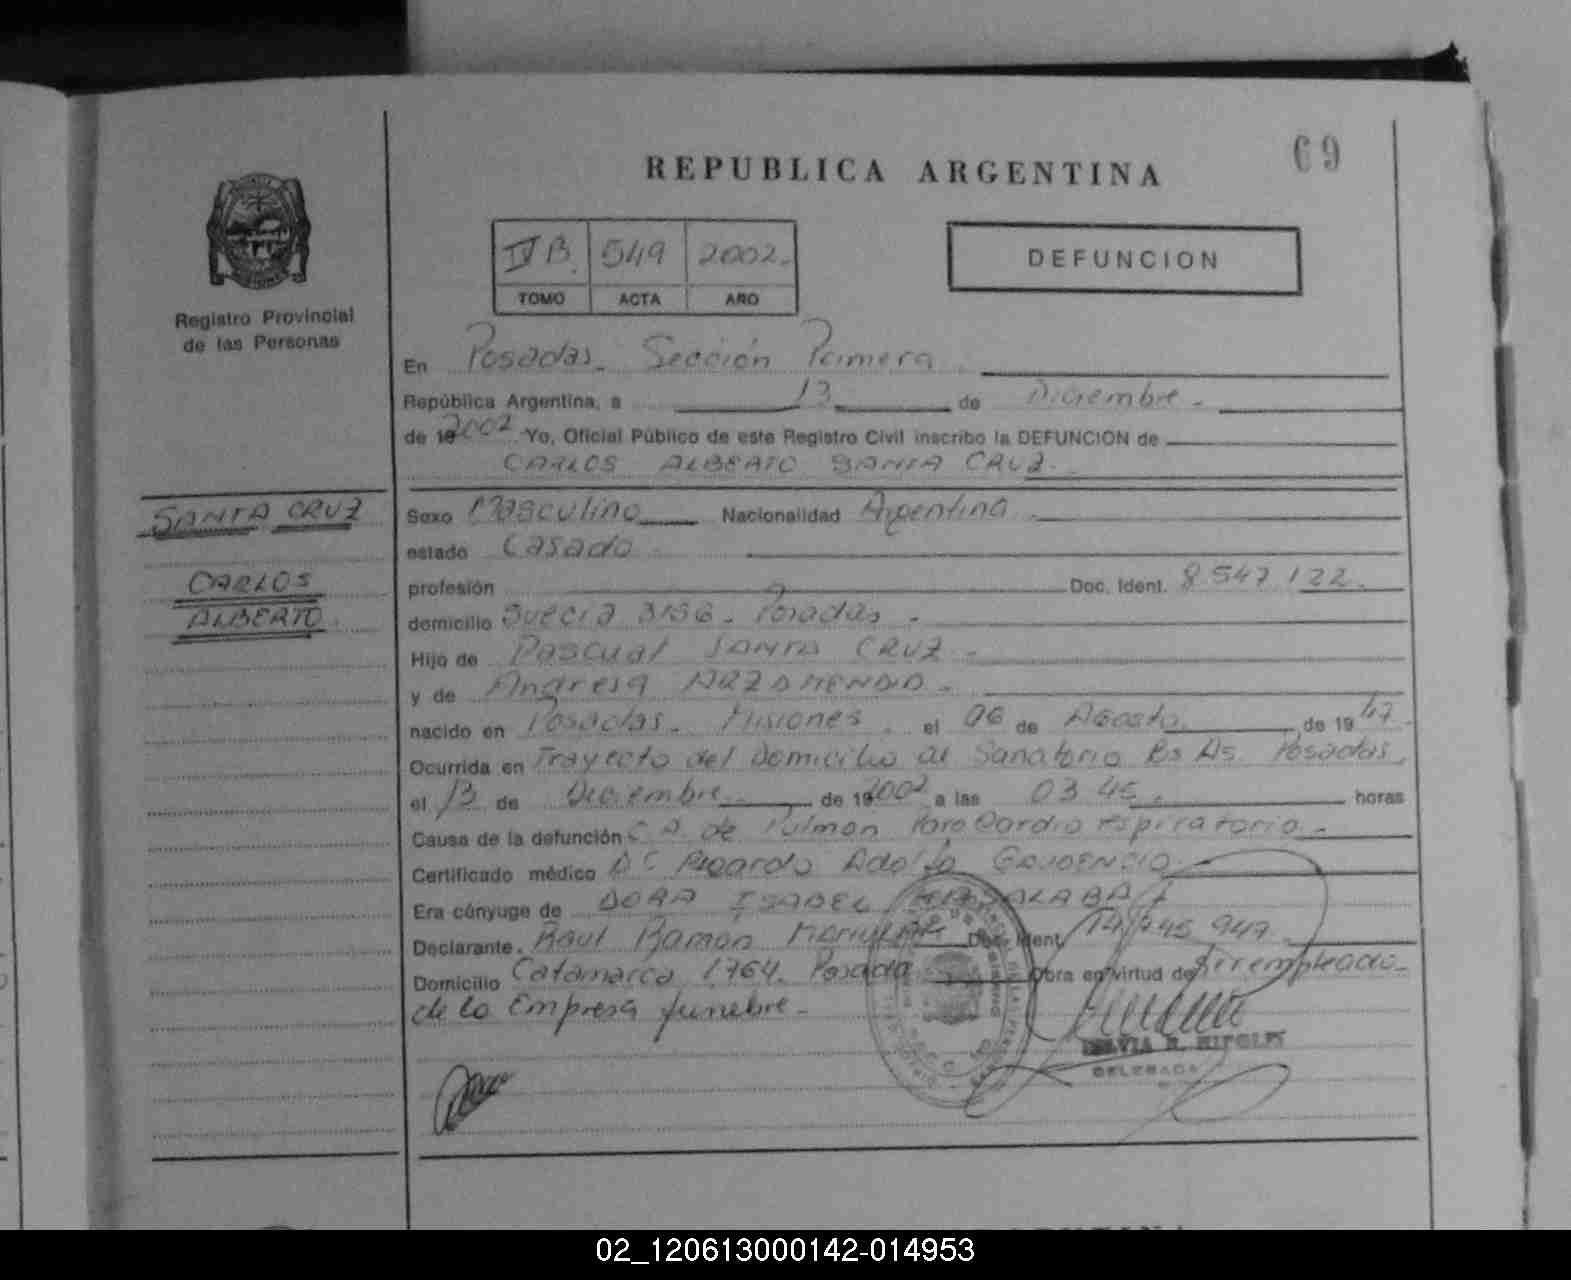 69
REPUBLICA ARGENTINA
IV B. 549 2002.
TOMO ACTA AÑO
DEFUNCION
Registro Provincial
de las Personas
En Posadas. Sección Primera.
República Argentina, a 13 de Diciembre.
de 19 2002 Yo, Oficial Público de este Registro Civil inscribo la DEFUNCION de
CARLOS ALBERTO SANTA CRUZ.
SANTA CRUZ
CARLOS
ALBERTO.
Sexo Masculino Nacionalidad Argentina.
estado Casado.
profesión Doc. Ident. 8547122.
domicilio Suecia 3156. Posadas.
Hijo de Pascual SANTA CRUZ.
y de Andresa ARZAMENDIA.
nacido en Posadas. Misiones. el 06 de Agosto. de 19 47.
Ocurrida en Trayecto del Domicilio al Sanatorio Bs As. Posadas.
el 13 de Diciembre. de 19 2002 a las 03 45. horas
Causa de la defunción C A. de Pulmon Paro Cardio respiratorio.
Certificado médico Dr. Ricardo Adolfo GAUDENCIO.
Era cónyuge de DORA ISABEL
Declarante. Raul Ramon Doc. Ident. 14 745 947.
Domicilio Catamarca 1764. Posadas Obra en virtud de Ser empleado
de la Empresa funebre.
DELEGADA
02_120613000142-014953